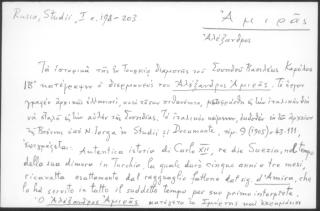 Russo, Studii, I σ. 198-203
Ἀμιρᾶς
Ἀλέξανδρος
Τὰ ἱστορικὰ τῆς ἐν Τουρκίᾳ διαμονῆς τοῦ Σουηδοῦ Βασιλέως Καρόλου
ΙΒ' κατέγραψεν ὁ διερμηνεύς του Ἀλέξανδρος Ἀμιρᾶς. Τὸ ἔργον
γραφὲν ἀρχικῶς ἑλληνιστί, κατὰ πᾶσαν πιθανότητα, μετεφράσθη εἰς τὴν ἰταλικὴν διὰ
νὰ σταλῇ εἰς τὴν αὐλὴν τῆς Σουηδίας. Τὸ ἰταλικὸν κείμενον, ἐκδοθὲν ἐκ τῶν ἀρχείων
τῆς Βιέννης ὑπὸ N. Iorga ἐν Studii şi Documente, τόμ. 9 (1905) 43-111,
ἐπιγράφεται: Autentica istoria di Carlo XII, re die Suezia, nel tempo
della sua dimora in Turchia, la quale durò cinque anni e tre mesi,
ricavatta esattamente dal ragguaglio fattone dal sig. d'Amira, che
lo hà servito in tutto il suddetto tempo per suo primo interprete.
Ὁ Ἀλέξανδρος Ἀμιρᾶς κατήγετο ἐκ Σμύρνης καὶ